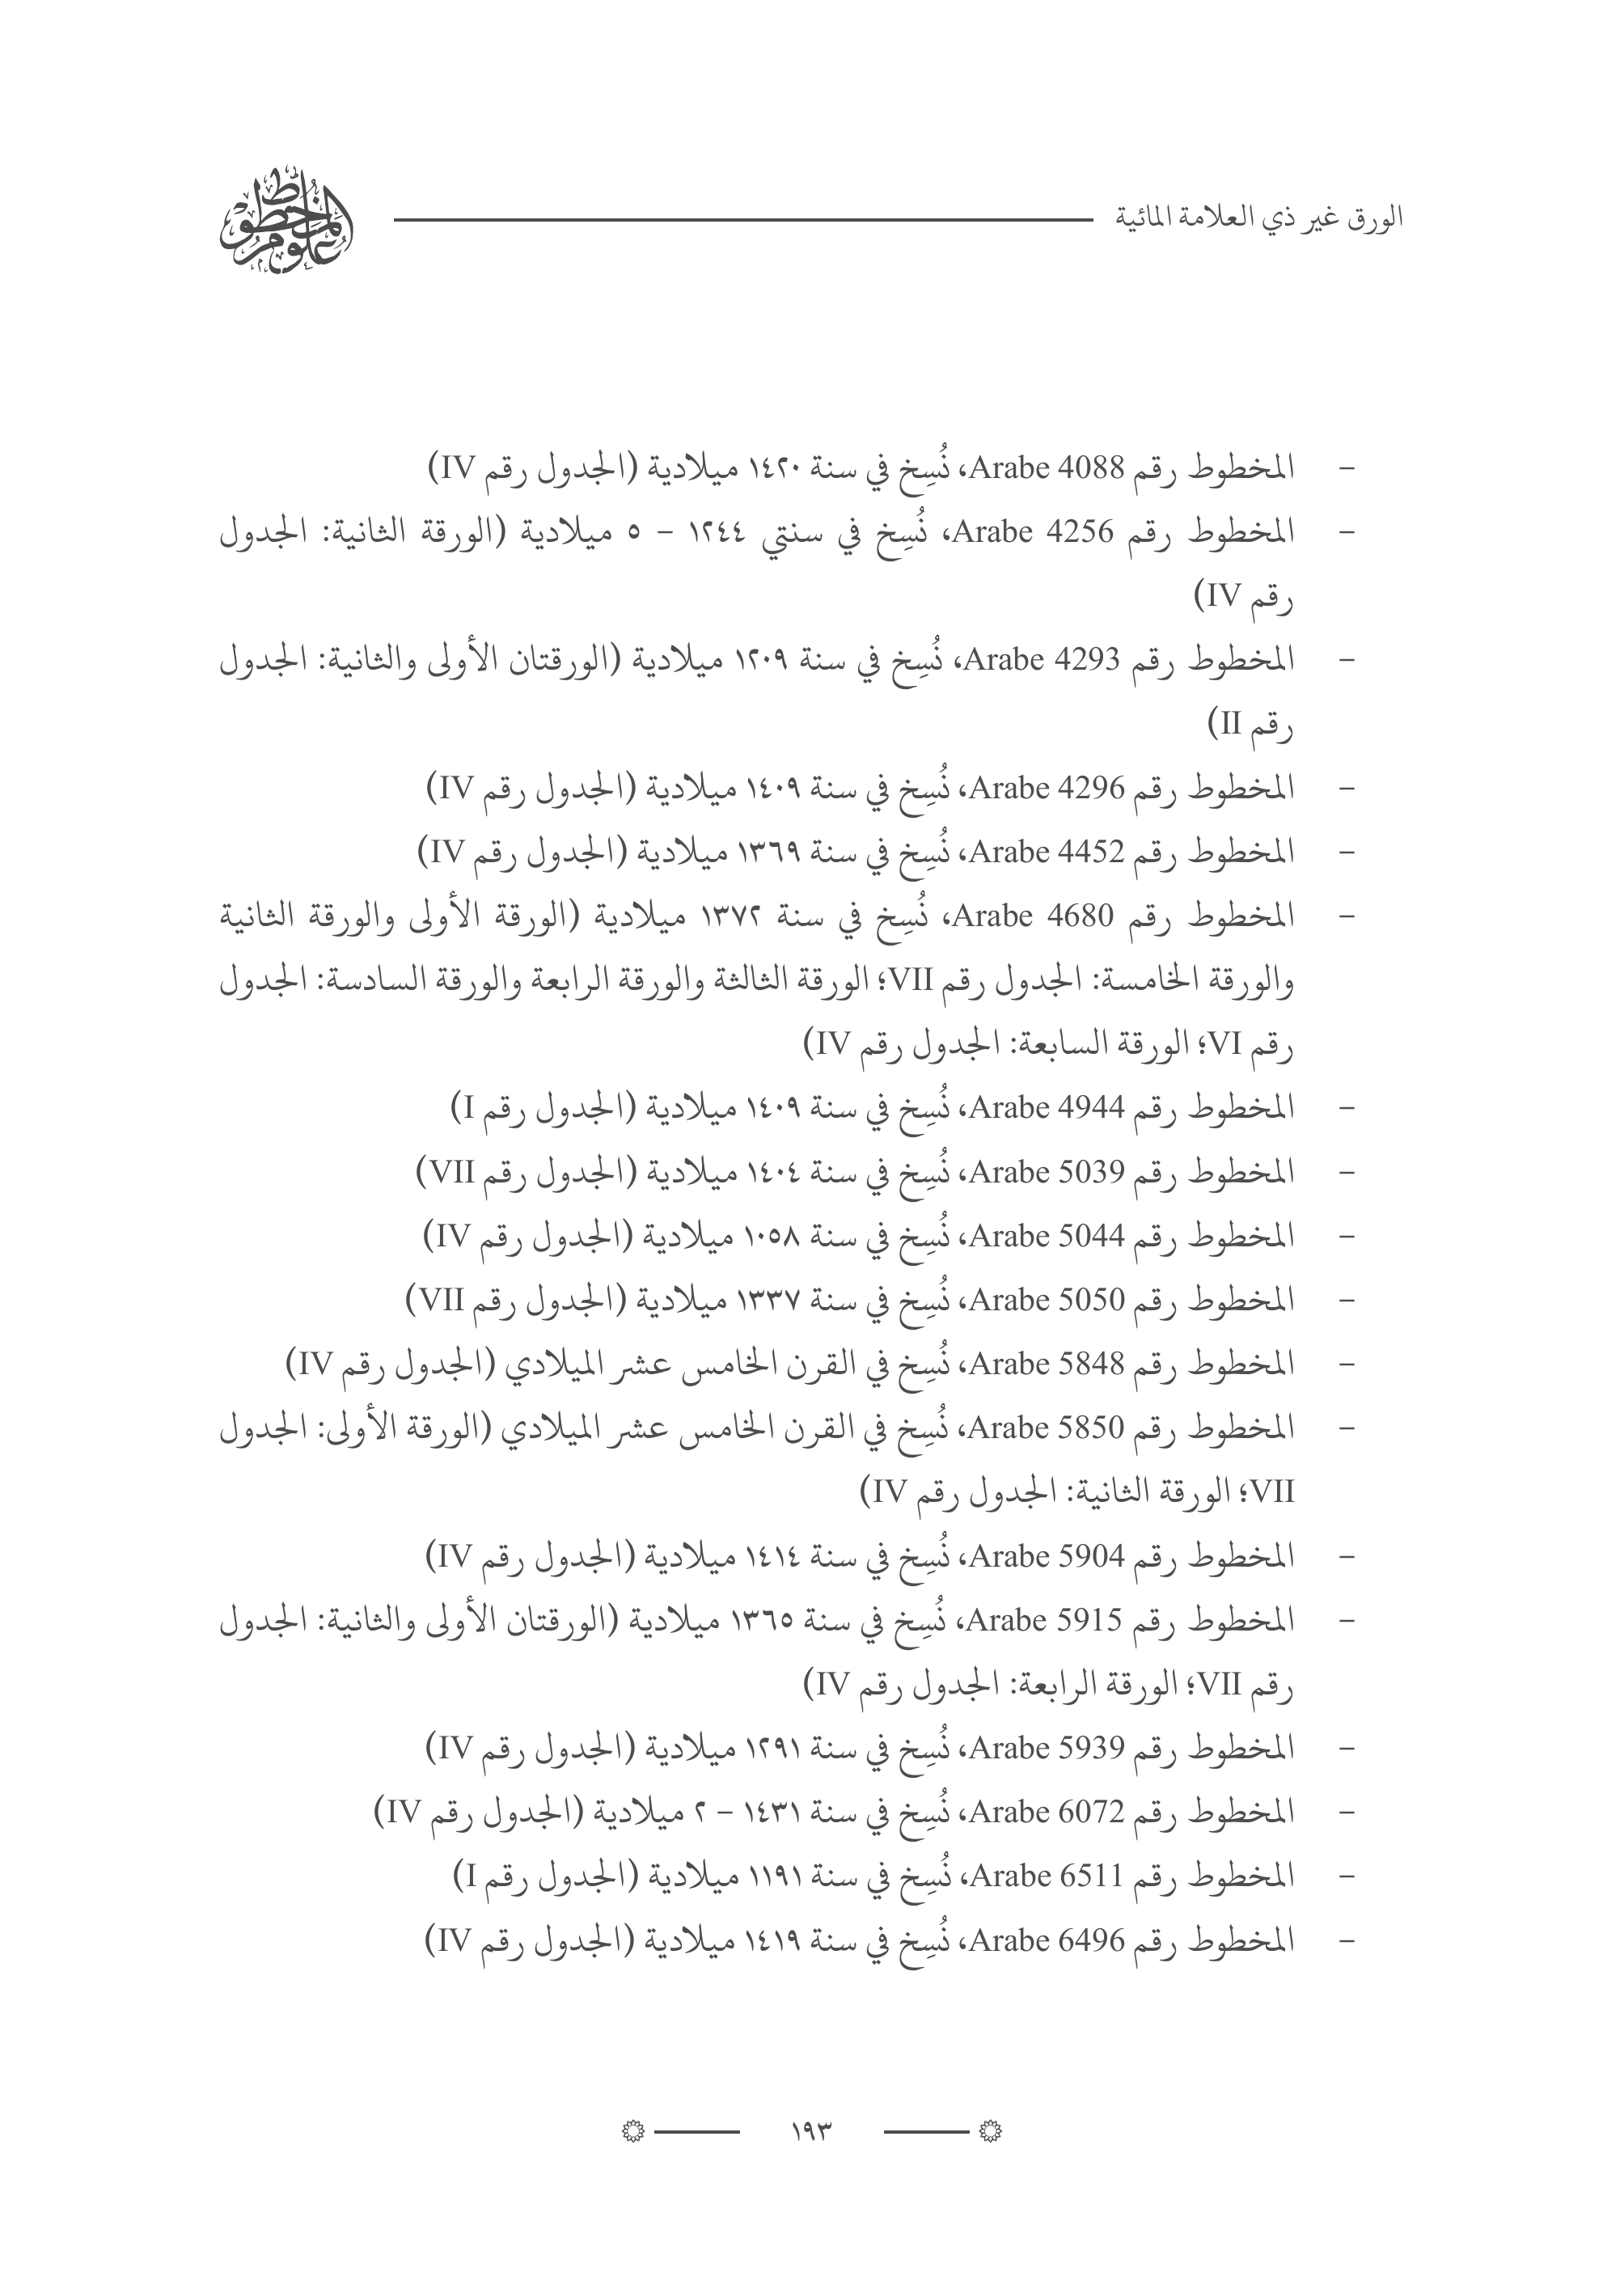 الورق غير ذي العلامة المائية
علوم المخطوط
– المخطوط رقم Arabe 4088، نُسِخ في سنة ١٤٢٠ ميلادية (الجدول رقم IV)
– المخطوط رقم Arabe 4256، نُسِخ في سنتي ١٢٤٤ – ٥ ميلادية (الورقة الثانية: الجدول
رقم IV)
– المخطوط رقم Arabe 4293، نُسِخ في سنة ١٢٠٩ ميلادية (الورقتان الأولى والثانية: الجدول
رقم II)
– المخطوط رقم Arabe 4296، نُسِخ في سنة ١٤٠٩ ميلادية (الجدول رقم IV)
– المخطوط رقم Arabe 4452، نُسِخ في سنة ١٣٦٩ ميلادية (الجدول رقم IV)
– المخطوط رقم Arabe 4680، نُسِخ في سنة ١٣٧٢ ميلادية (الورقة الأولى والورقة الثانية
والورقة الخامسة: الجدول رقم VII؛ الورقة الثالثة والورقة الرابعة والورقة السادسة: الجدول
رقم VI؛ الورقة السابعة: الجدول رقم IV)
– المخطوط رقم Arabe 4944، نُسِخ في سنة ١٤٠٩ ميلادية (الجدول رقم I)
– المخطوط رقم Arabe 5039، نُسِخ في سنة ١٤٠٤ ميلادية (الجدول رقم VII)
– المخطوط رقم Arabe 5044، نُسِخ في سنة ١٠٥٨ ميلادية (الجدول رقم IV)
– المخطوط رقم Arabe 5050، نُسِخ في سنة ١٣٣٧ ميلادية (الجدول رقم VII)
– المخطوط رقم Arabe 5848، نُسِخ في القرن الخامس عشر الميلادي (الجدول رقم IV)
– المخطوط رقم Arabe 5850، نُسِخ في القرن الخامس عشر الميلادي (الورقة الأولى: الجدول
VII؛ الورقة الثانية: الجدول رقم IV)
– المخطوط رقم Arabe 5904، نُسِخ في سنة ١٤١٤ ميلادية (الجدول رقم IV)
– المخطوط رقم Arabe 5915، نُسِخ في سنة ١٣٦٥ ميلادية (الورقتان الأولى والثانية: الجدول
رقم VII؛ الورقة الرابعة: الجدول رقم IV)
– المخطوط رقم Arabe 5939، نُسِخ في سنة ١٢٩١ ميلادية (الجدول رقم IV)
– المخطوط رقم Arabe 6072، نُسِخ في سنة ١٤٣١ – ٢ ميلادية (الجدول رقم IV)
– المخطوط رقم Arabe 6511، نُسِخ في سنة ١١٩١ ميلادية (الجدول رقم I)
– المخطوط رقم Arabe 6496، نُسِخ في سنة ١٤١٩ ميلادية (الجدول رقم IV)
١٩٣